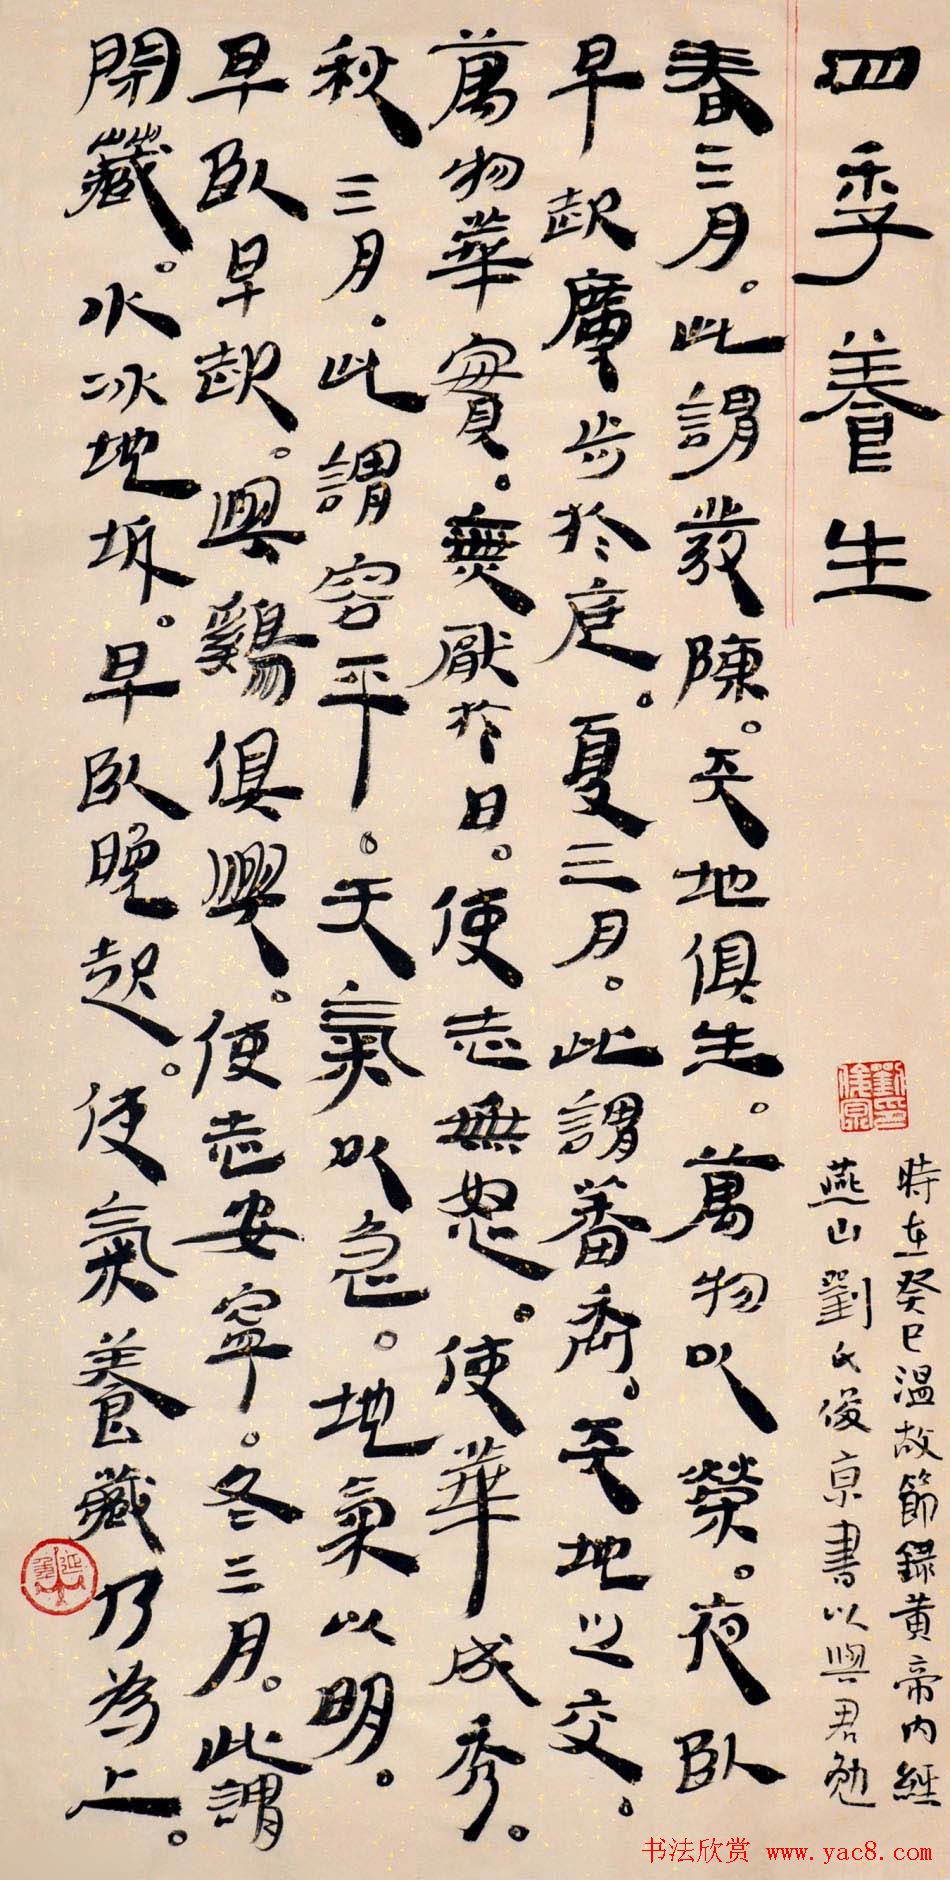 四季養生
春三月。此謂發陳。天地俱生。萬物以榮。夜臥
早起廣步於庭。夏三月。此謂蕃秀。天地之交。
萬物華實。無厭於日。使志無怒。使華成秀。
秋三月。此謂容平。天氣以急。地氣以明。
早臥早起。與鷄俱興。使志安寧。冬三月。此謂
閉藏。水冰地坼。早臥晚起。使氣養藏乃為上。
時在癸巳溫故節錄黃帝內經
燕山劉氏俊京書以與君勉
书法欣赏 www.yac8.com